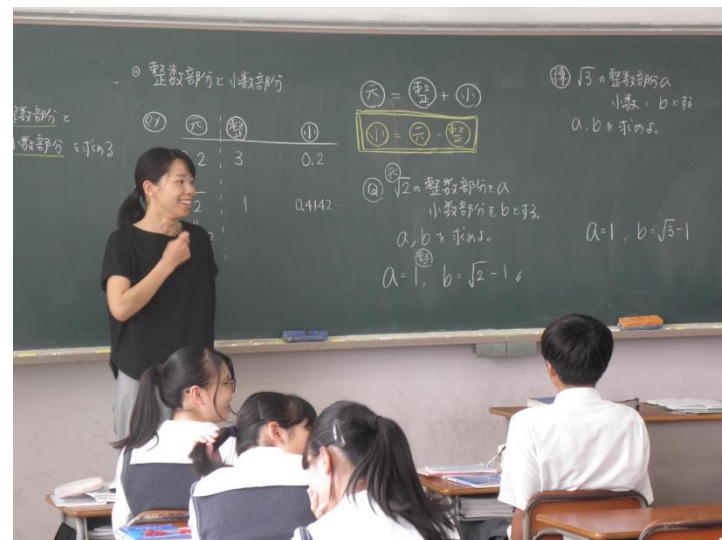 数部分と
小数部分 を求める
◎ 整数部分と小数部分
ex 元 整 小
.2 3 0.2
2 1 0.4142…
元 = 整 + 小
小 = 元 - 整
Q 元 √2の整数部分をa
小数部分をbとする。
a, bを求めよ。
整
a=1, b=√2-1
√3の整数部分a
小数〃bとする
a, bを求めよ。
a=1, b=√3-1